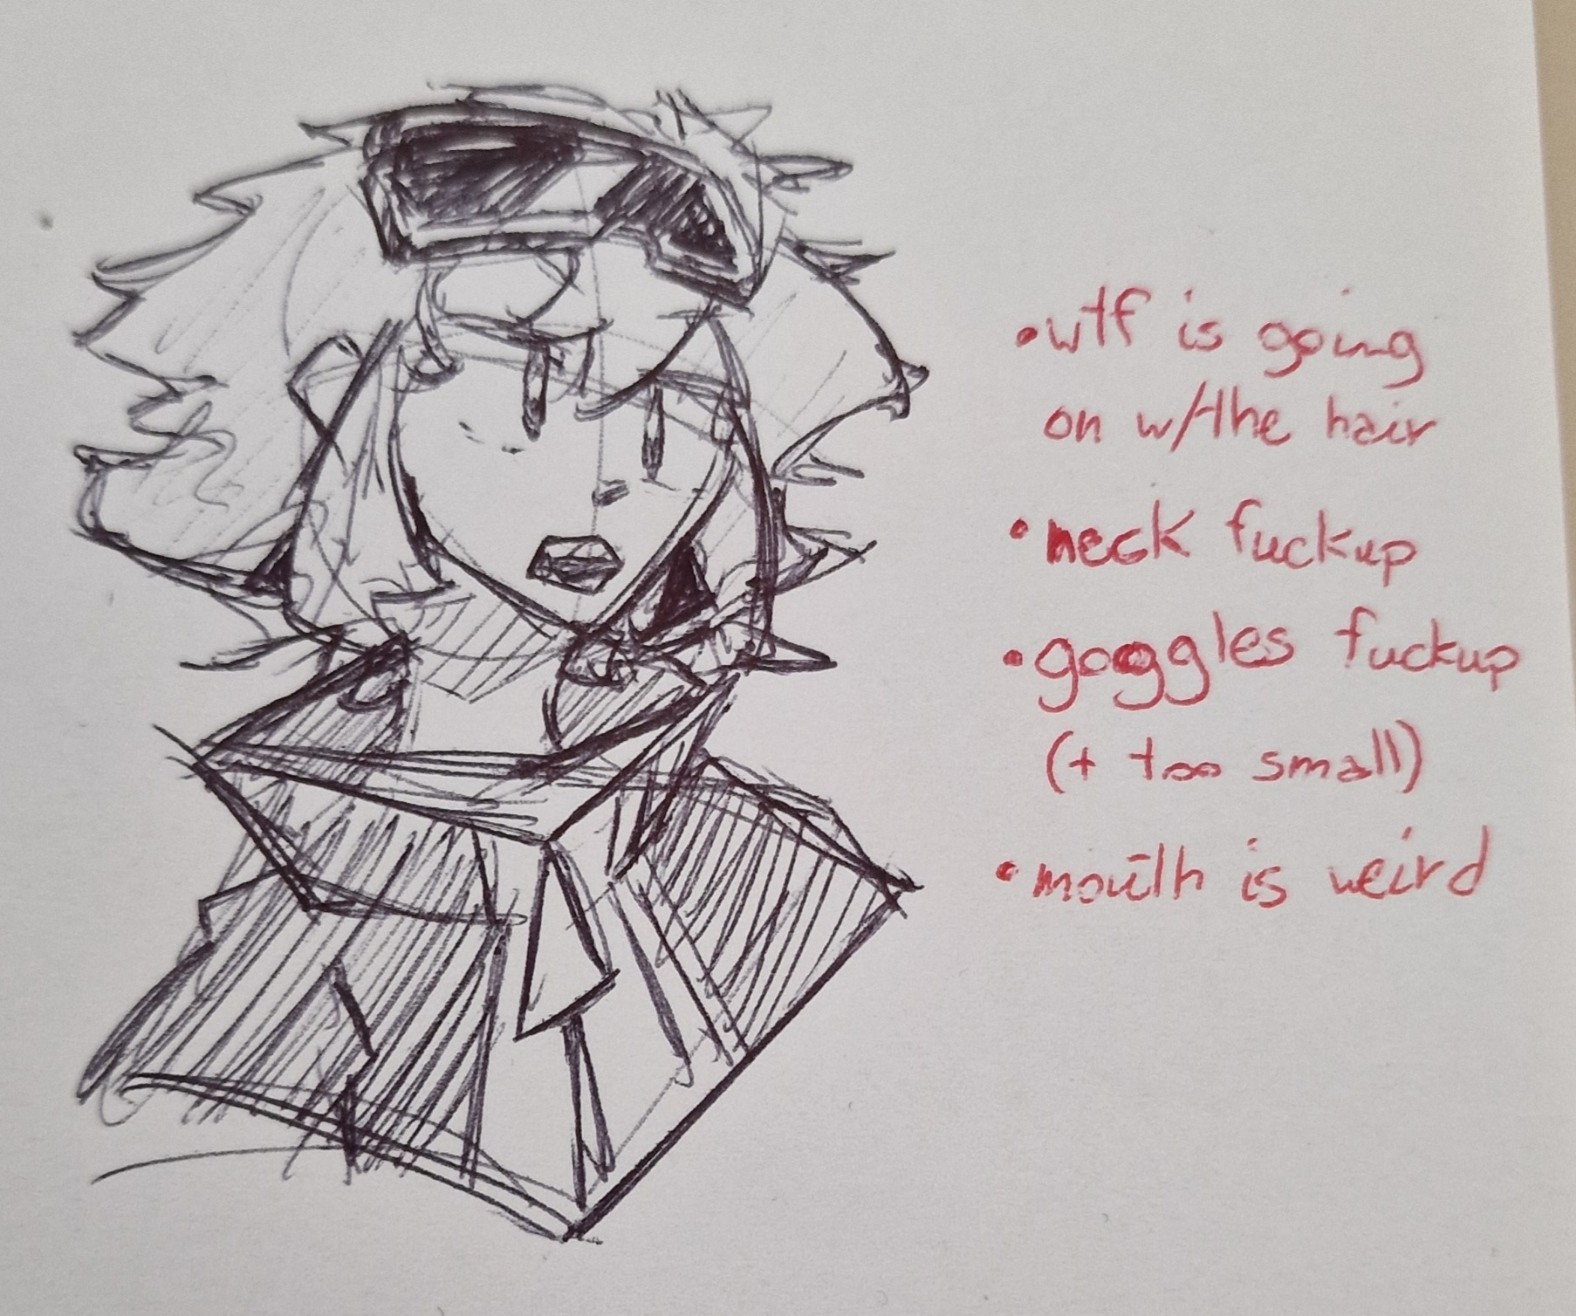 • wtf is going
on w/the hair
• neck fuckup
• goggles fuckup
(+ too small)
• mouth is weird